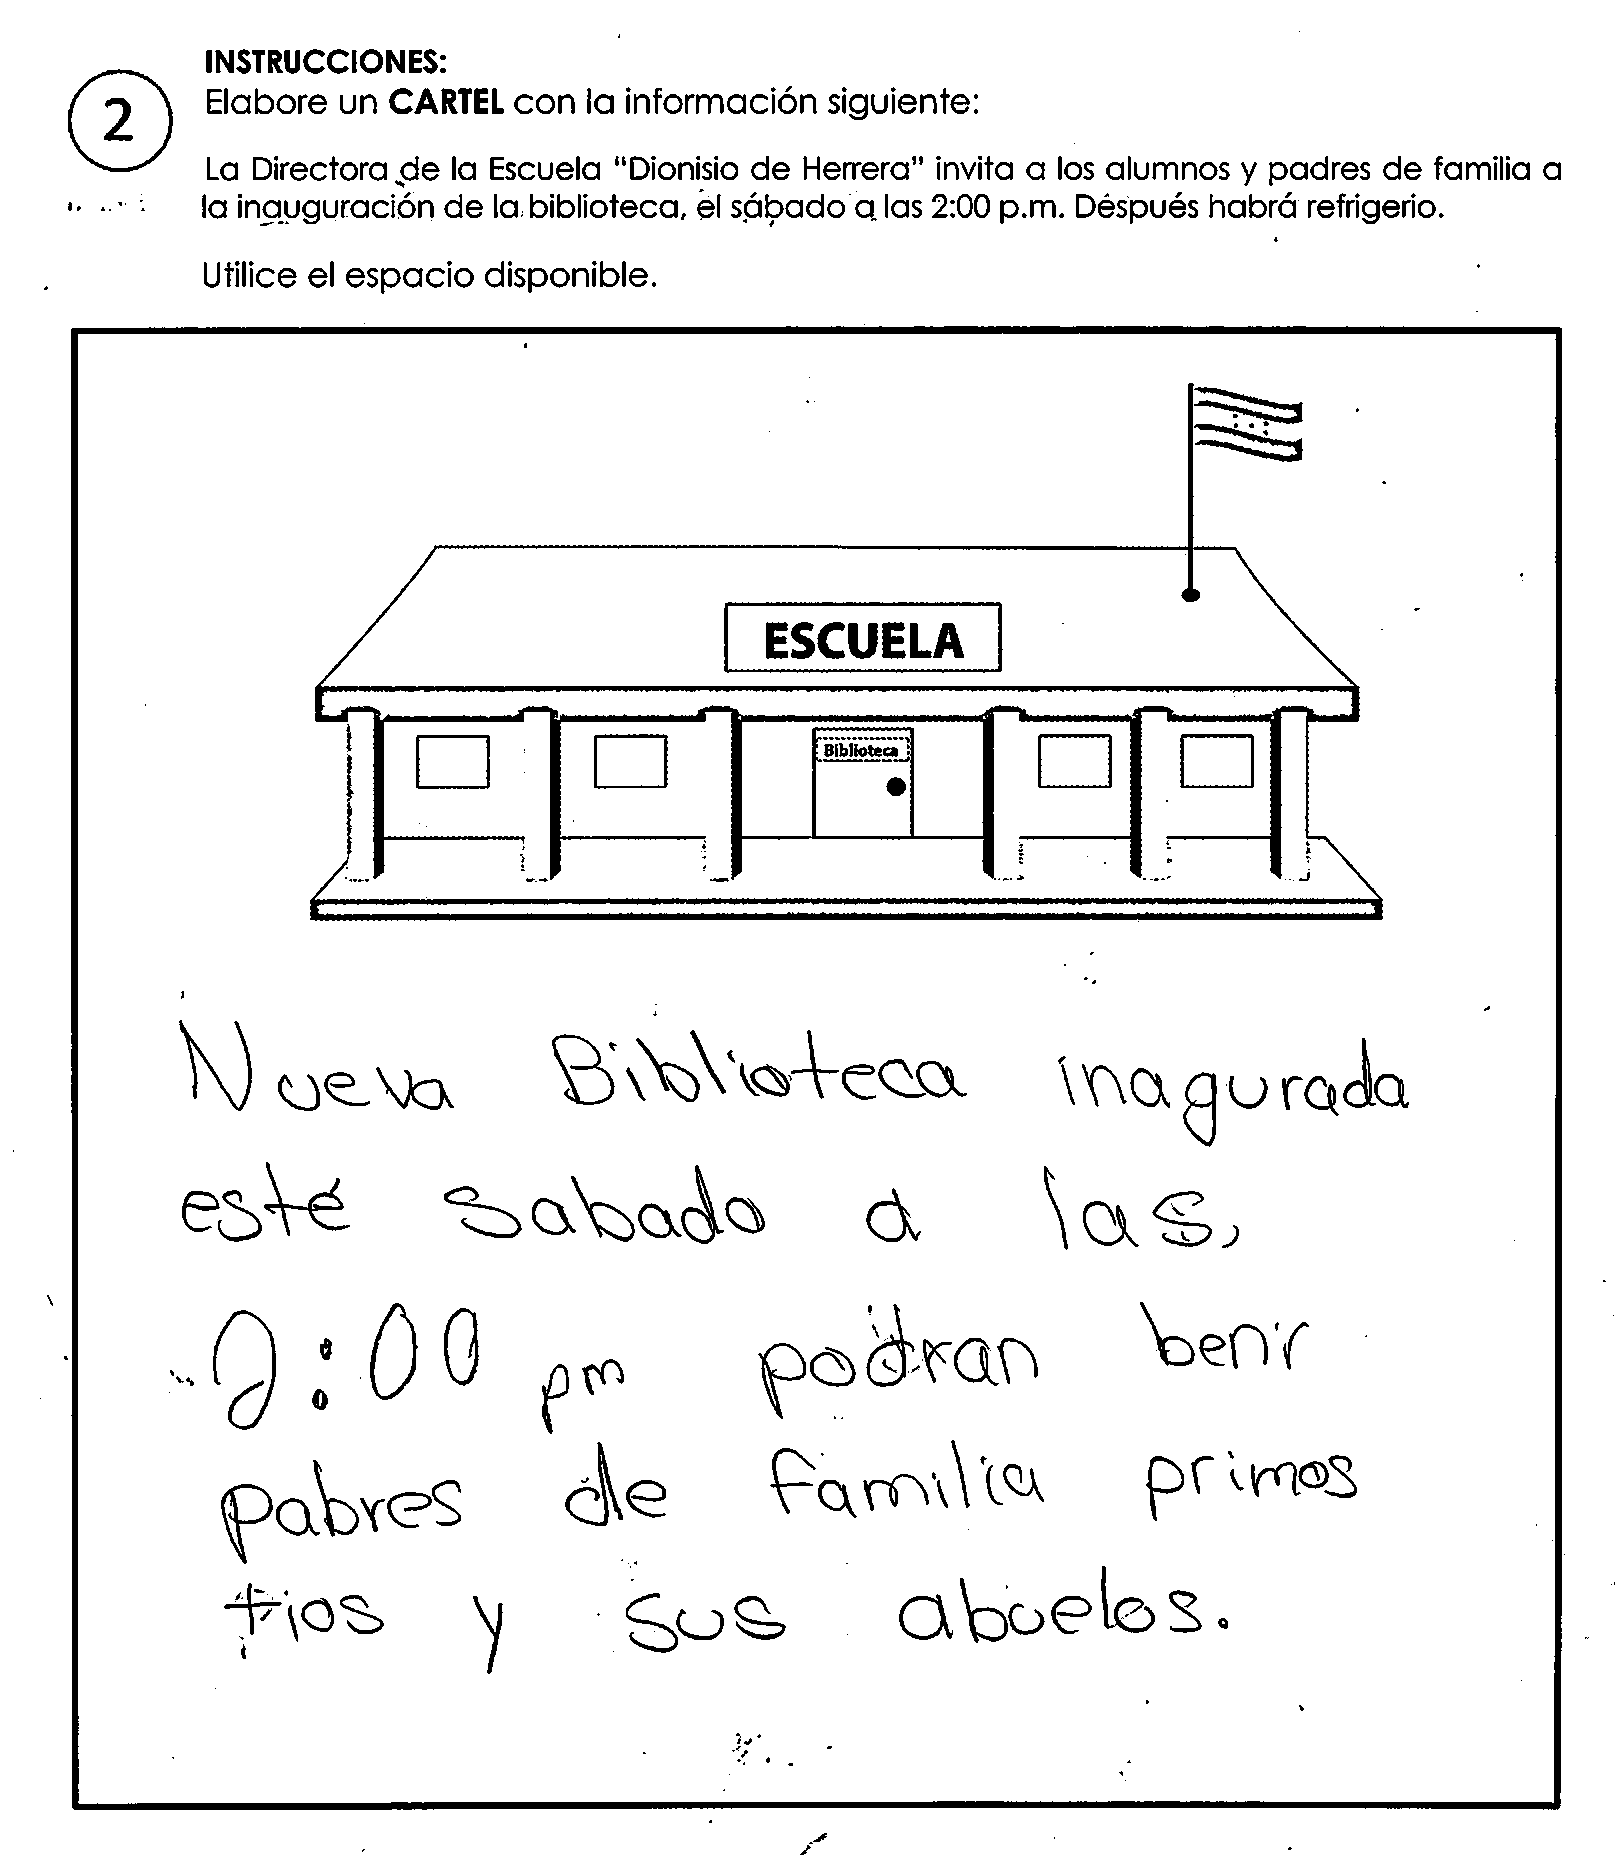 INSTRUCCIONES:
2
Elabore un CARTEL con la información siguiente:
La Directora de la Escuela "Dionisio de Herrera" invita a los alumnos y padres de familia a
la inauguración de la biblioteca, el sábado a las 2:00 p.m. Después habrá refrigerio.
Utilice el espacio disponible.
ESCUELA
Biblioteca
Nueva Biblioteca inagurada
esté sabado a las,
2:00 pm podran benir
pabres de familia primos
tios y sus abuelos.